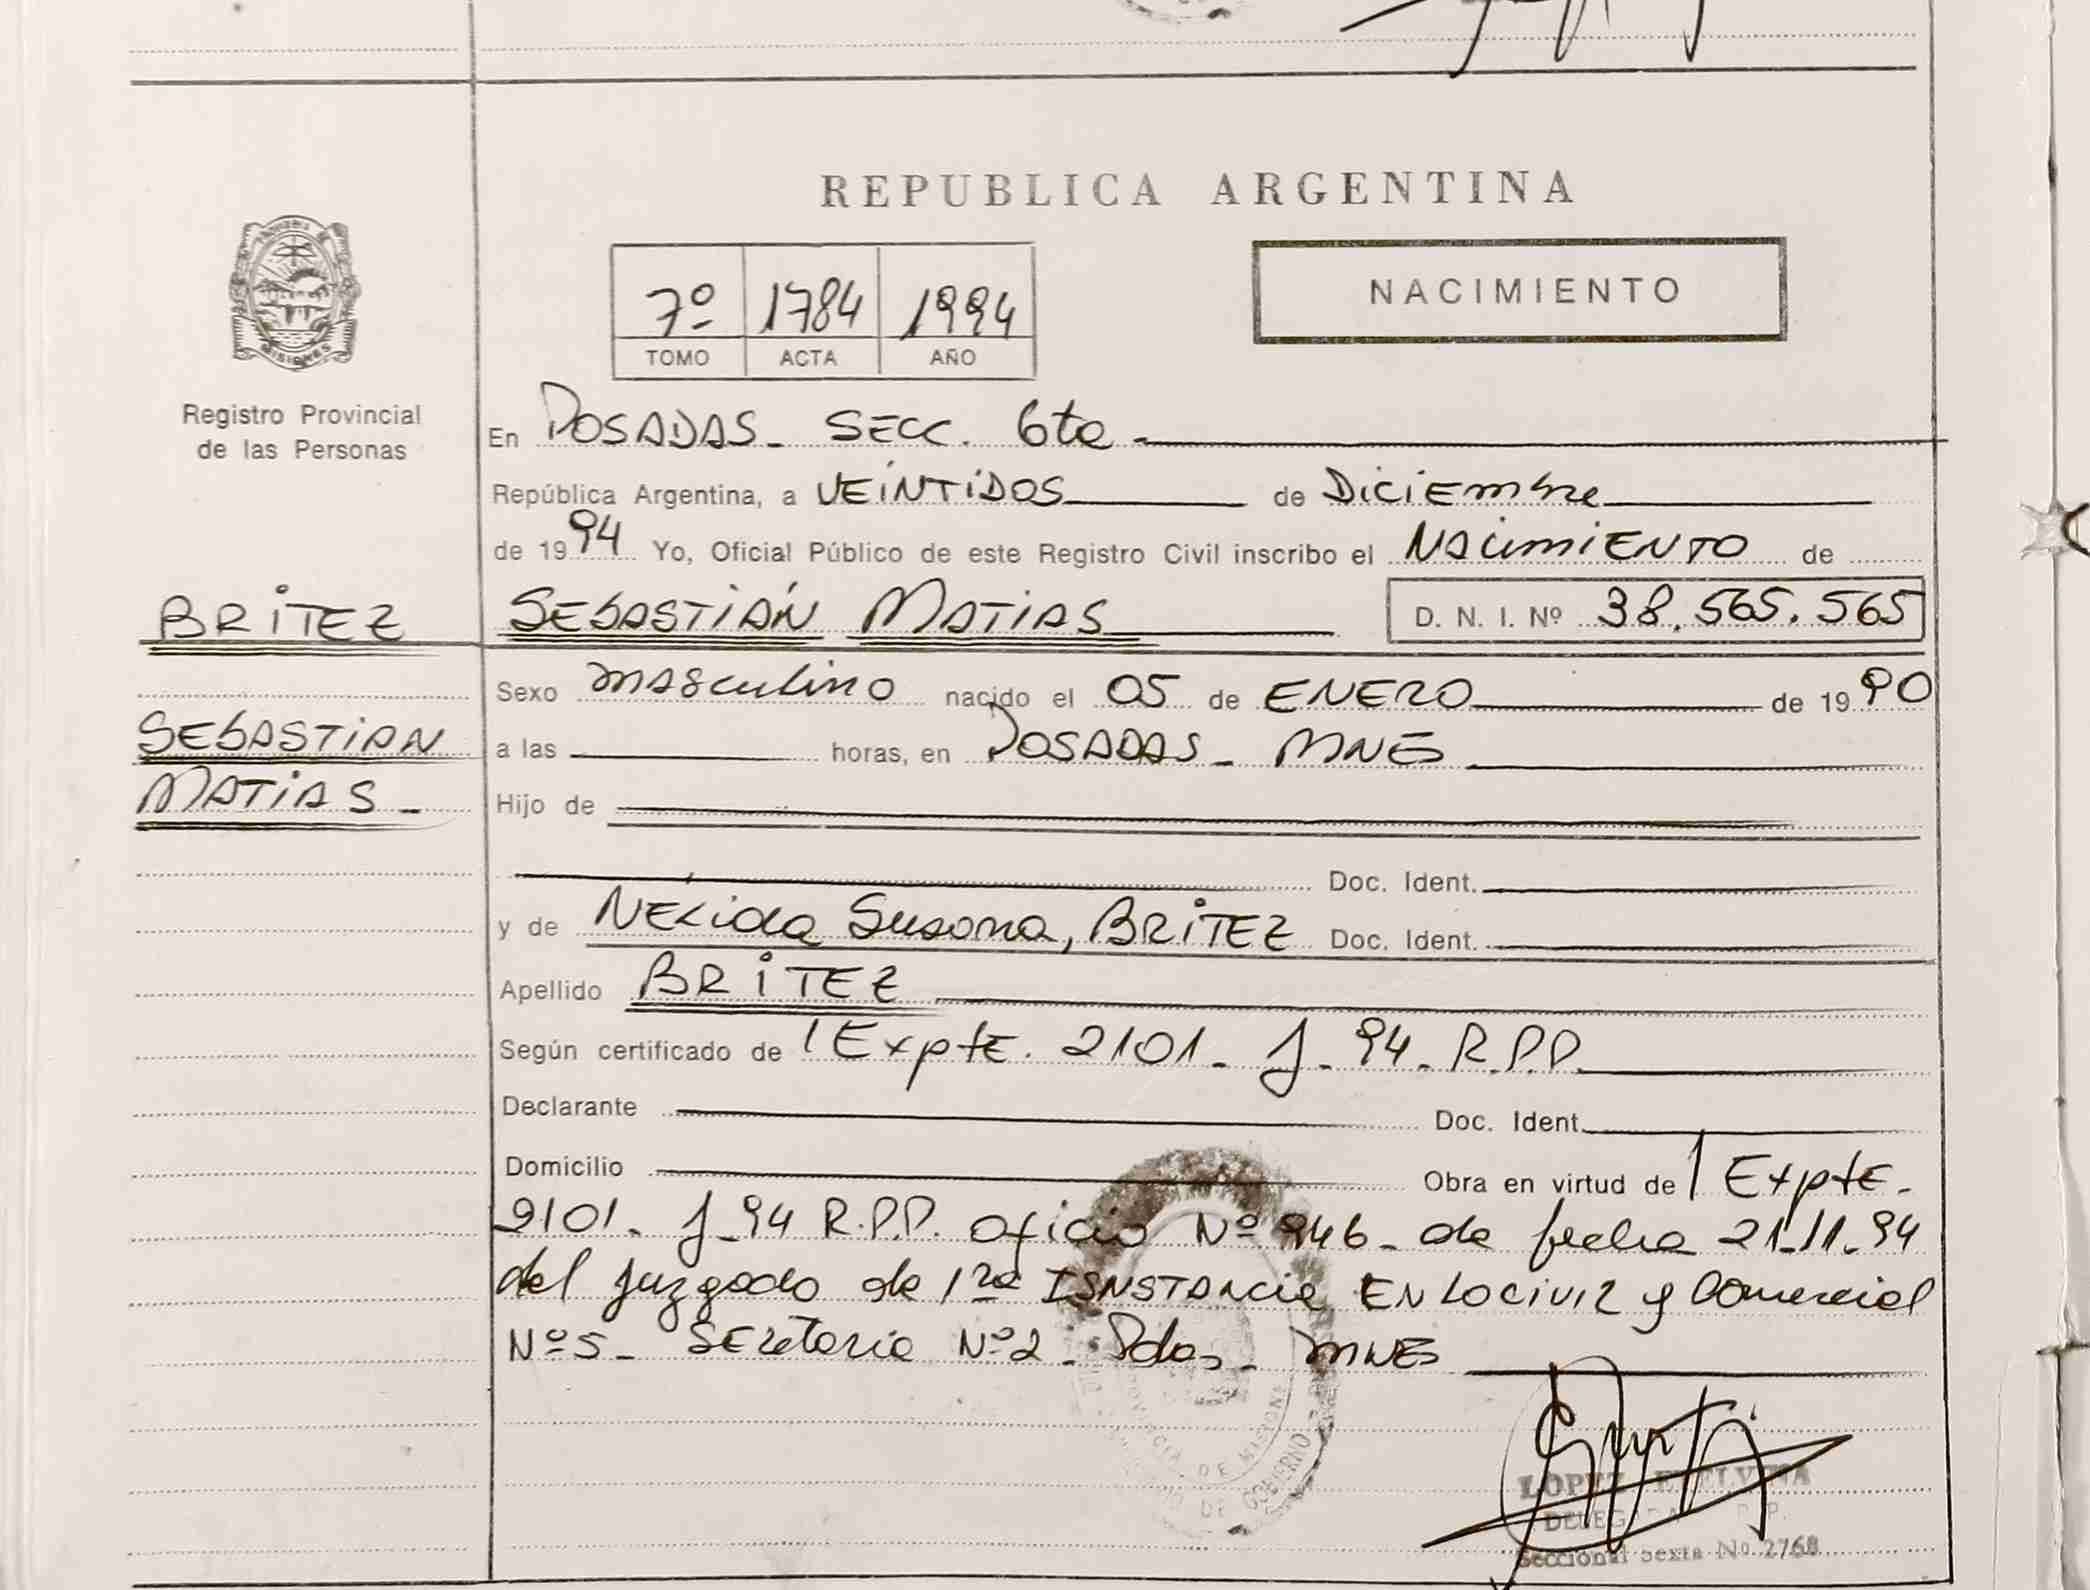 REPUBLICA ARGENTINA
MISIONES
Registro Provincial
de las Personas
7º 1784 1994
TOMO ACTA AÑO
NACIMIENTO
En POSADAS - SECC. 6ta -
República Argentina, a VEINTIDOS de DICIEMBRE
de 1994 Yo, Oficial Público de este Registro Civil inscribo el NACIMIENTO de
BRITEZ SEBASTIÁN MATIAS D. N. I. Nº 38.565.565
Sexo masculino nacido el 05 de ENERO de 1990
SEBASTIAN
a las horas, en POSADAS - MNES
MATIAS -
Hijo de
Doc. Ident.
y de NELida Susana, BRITEZ Doc. Ident.
Apellido BRITEZ
Según certificado de 1 Expte. 2101 - J - 94 - R.P.P.
Declarante Doc. Ident.
Domicilio Obra en virtud de 1 Expte.
2101 - J - 94 R.P.P. oficio Nº 946 - de fecha 21-11-94
del juzgado de 1ra ISNSTANCIA EN LO CIVIL y Comercial
Nº 5 - SEcretaria Nº 2 - Pdas - MNES
PROVINCIA DE MISIONES
DE GOBIERNO
LOPEZ ETELVINA
DELEGADA R.P.P.
Seccional Sexta Nº 2768